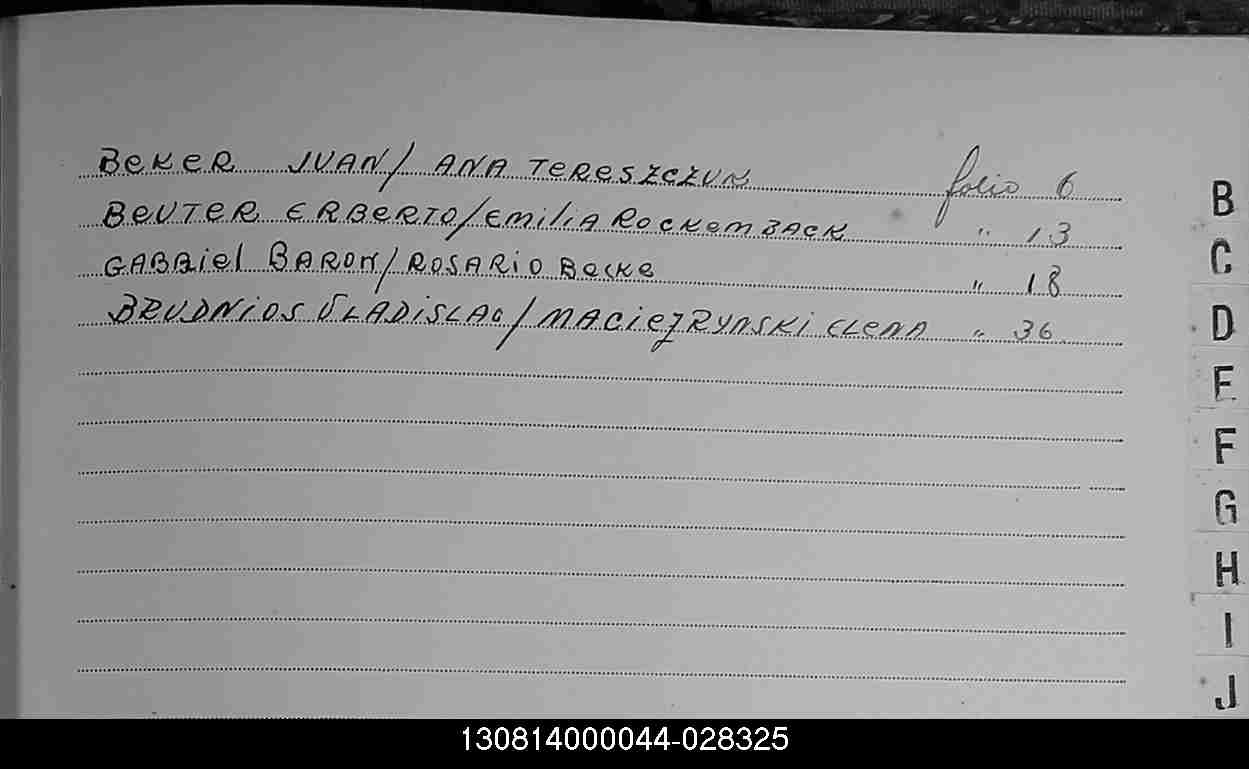 BEKER JUAN/ ANA TERESZCZUK folio 6
BEUTER ERBERTO/EMILIA ROCKEMBACK " 13
GABRIEL BARON/ROSARIO BECKE " 18
BRUDNIOS VLADISLAO/MACIEJRYNSKI ELENA " 36
B
C
D
E
F
G
H
I
J
130814000044-028325